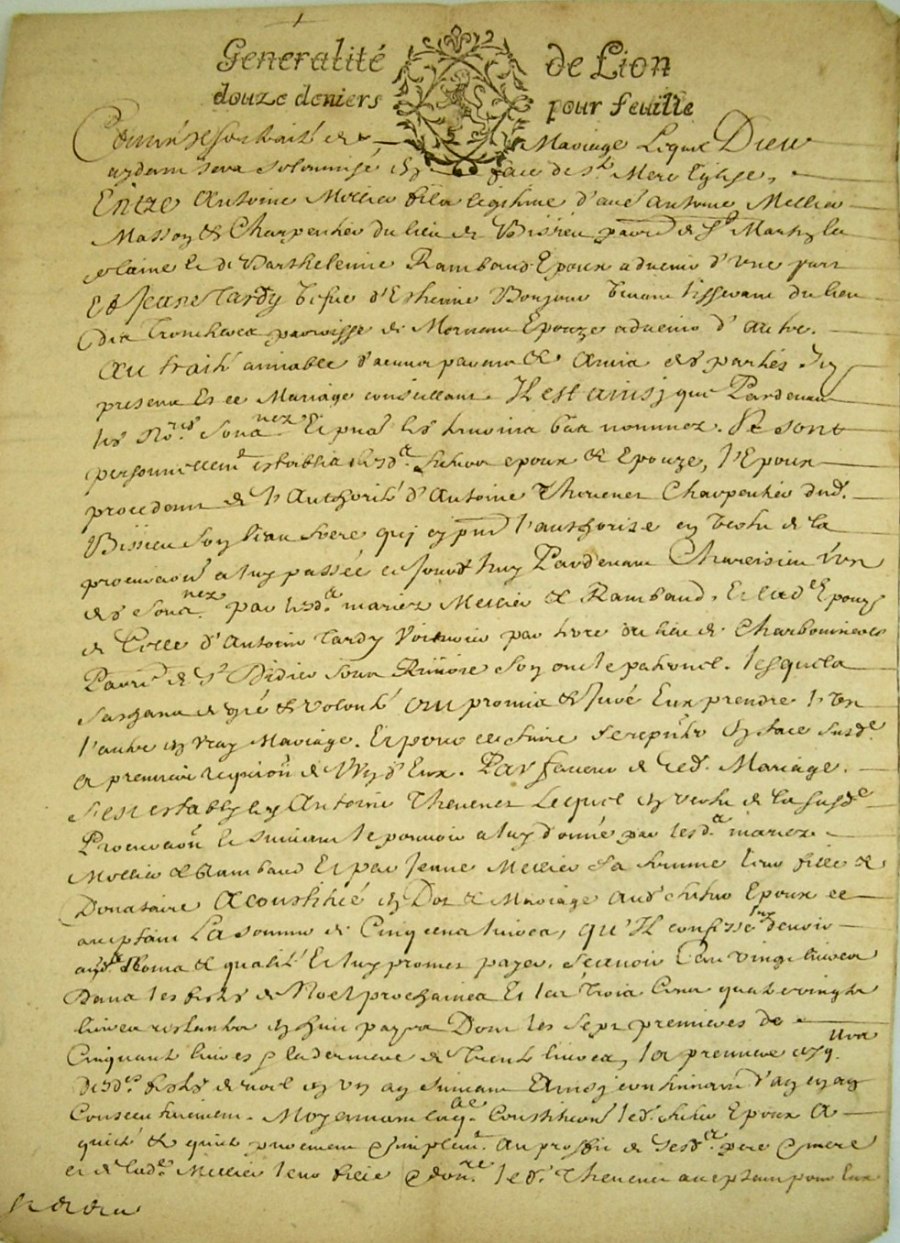 Generalité de Lion
douze deniers pour feuille
Mariage Lequel Dieu
aydant sera solemnisé en face de Ste Mere Eglise,
Entre Antoine Mellier fils legitime d'aud Antoine Mellier
Masson & Charpentier du lieu de Bissieu parr de St Martin la
plaine & de Barthelemie Rambaud Epoux advenir d'Une part
Et Jeane Tardy d'Estienne Tisserant du lieu
paroisse de Mornant Epouze advenir d'Autre.
Au traité amiable parans & Amis des parties Icy
presens Et ce Mariage conseillant. Il est ainsi que Pardevant
les Nores Et pnt les tesmoins bas nommez. Se sont
personnellemt establis lesds futurs epoux & Epouze, l'Epoux
procedant de l'Authorité d'Antoine Thevenet Charpentier dud.
Bissieu son beau frere qui cy pnt l'authorize en Vertu de la
procuraon a luy passée ce jourdhuy Pardevant Un
des par lesds mariez Mellier & Rambaud, Et lade Epouze
de Celle d'Antoine Tardy Voiturier par terre du lieu de Charbonnieres
Parr de St Didier sous Riviere son oncle paternel. lesquels
de gré & volonté ont promis & Juré Eux prendre l'Un
l'autre en vray Mariage. Et pour ce faire se en face susde
a premiere requion de l'Un d'Eux. Par faveur de ced. Mariage.
s'est estably led Antoine Thevenet Lequel en vertu de la susde
Procuraon & suivant le pouvoir a luy donné par lesds mariez
Mellier & Rambaud Et par Jeane Mellier sa femme leur fille &
Donataire A constitué en Dot & Mariage aud futur Epoux ce
acceptant La somme de Cinq cens livres, qu'Il confesse devoir
auds Noms & qualité Et luy promet payer. Scavoir Cent vingt livres
Dans les festes de Noel prochaines Et les Trois Cens quatre vingts
livres restantes en huit payes Dont les sept premieres de
Cinquante livres & la derniere de Trente livres, la premiere
desdes festes de noel en un an suivant Et ainsi continuant d'an en an
Consecutivement. Moyennant laqe Constituon led. futur Epoux A
quitté & quitte purement & simplemt Au proffit de sesds pere & mere
& de lade Mellier leur fille & donre led. Thevenet acceptant pour Eux